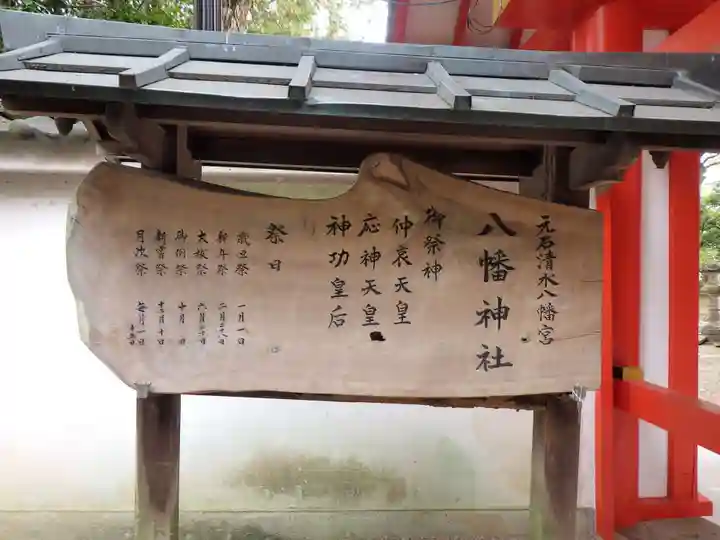 元石清水八幡宮
八幡神社
御祭神
仲哀天皇
応神天皇
神功皇后
祭日
歳旦祭 一月一日
祈年祭 二月二十八日
大祓祭 六月三十日
例祭 十月
新嘗祭 十二月十日
月次祭 毎月一日